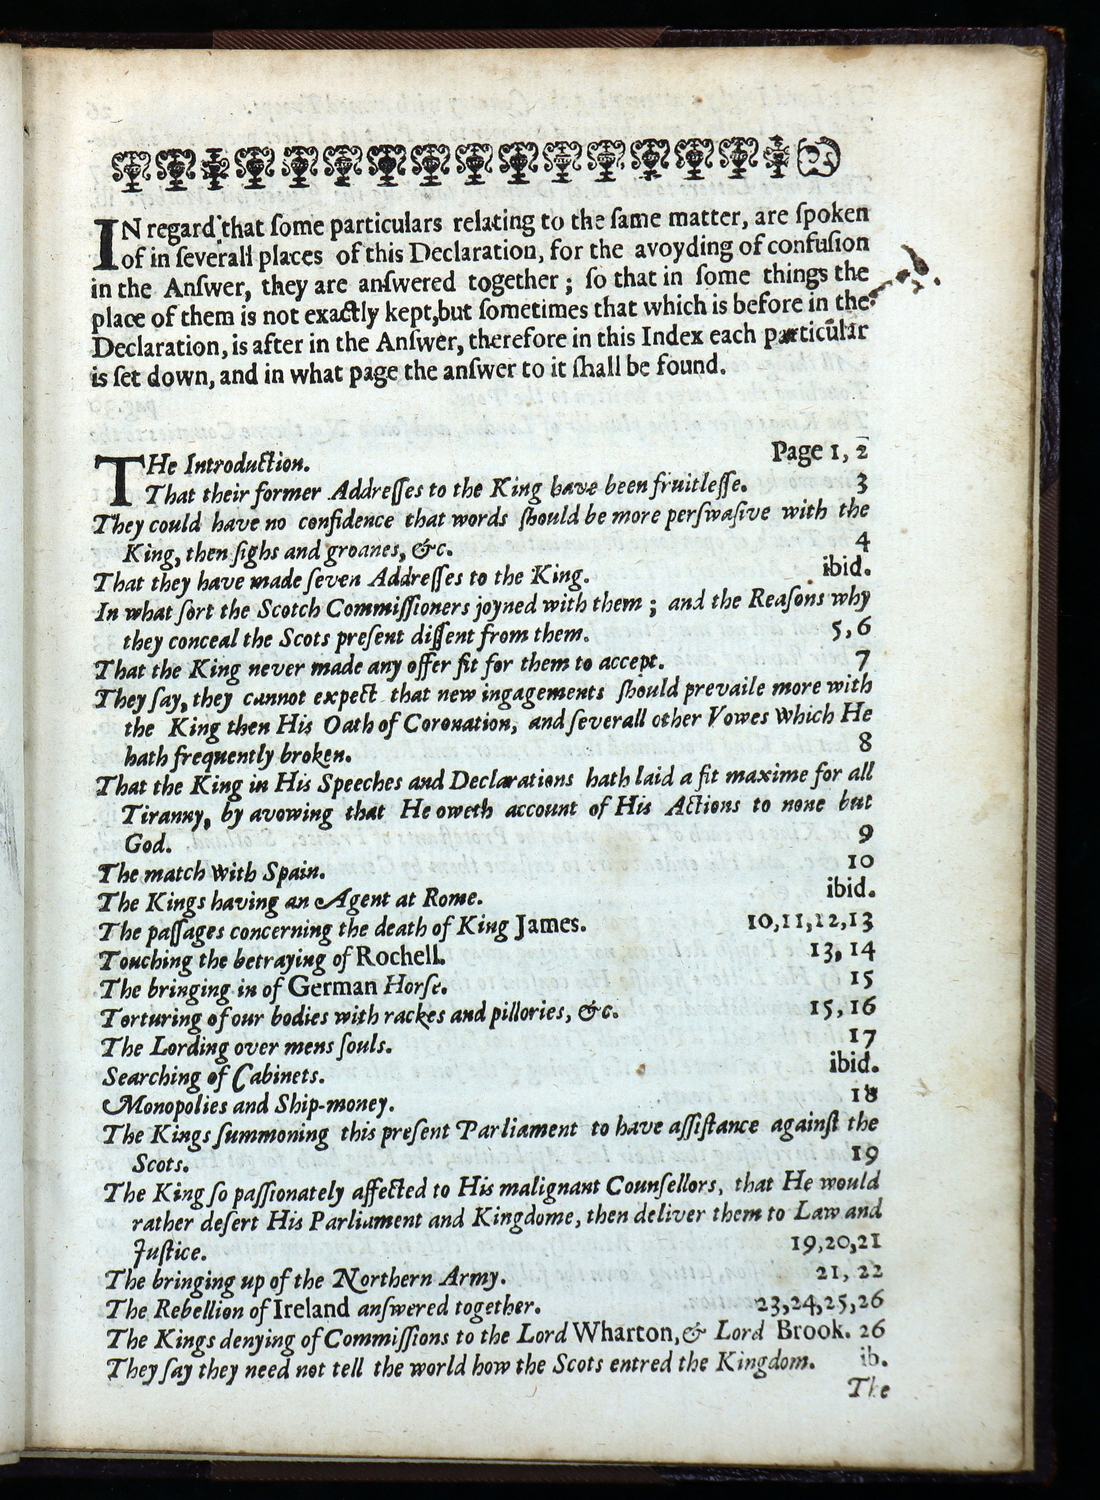 IN regard that ſome particulars relating to the ſame matter, are ſpoken
of in ſeverall places of this Declaration, for the avoyding of confuſion
in the Anſwer, they are anſwered together; ſo that in ſome things the
place of them is not exactly kept, but ſometimes that which is before in the
Declaration, is after in the Anſwer, therefore in this Index each particular
is ſet down, and in what page the anſwer to it ſhall be found.
THe Introduction. Page 1, 2
That their former Addreſſes to the King have been fruitleſſe. 3
They could have no confidence that words ſhould be more perſwaſive with the
King, then ſighs and groanes, &c. 4
That they have made ſeven Addreſſes to the King. ibid.
In what ſort the Scotch Commiſſioners joyned with them; and the Reaſons why
they conceal the Scots preſent diſſent from them. 5,6
That the King never made any offer fit for them to accept. 7
They ſay, they cannot expect that new ingagements ſhould prevaile more with
the King then His Oath of Coronation, and ſeverall other Vowes which He
hath frequently broken. 8
That the King in His Speeches and Declarations hath laid a fit maxime for all
Tiranny, by avowing that He oweth account of His Actions to none but
God. 9
The match with Spain. 10
The Kings having an Agent at Rome. ibid.
The paſſages concerning the death of King James. 10,11,12,13
Touching the betraying of Rochell. 13, 14
The bringing in of German Horſe. 15
Torturing of our bodies with rackes and pillories, &c. 15,16
The Lording over mens ſouls. 17
Searching of Cabinets. ibid.
Monopolies and Ship-money. 18
The Kings ſummoning this preſent Parliament to have aſſiſtance againſt the
Scots. 19
The King ſo paſſionately affected to His malignant Counſellors, that He would
rather deſert His Parliament and Kingdome, then deliver them to Law and
Juſtice. 19,20,21
The bringing up of the Northern Army. 21, 22
The Rebellion of Ireland anſwered together. 23,24,25,26
The Kings denying of Commiſſions to the Lord Wharton, & Lord Brook. 26
They ſay they need not tell the world how the Scots entred the Kingdom. ib.
The